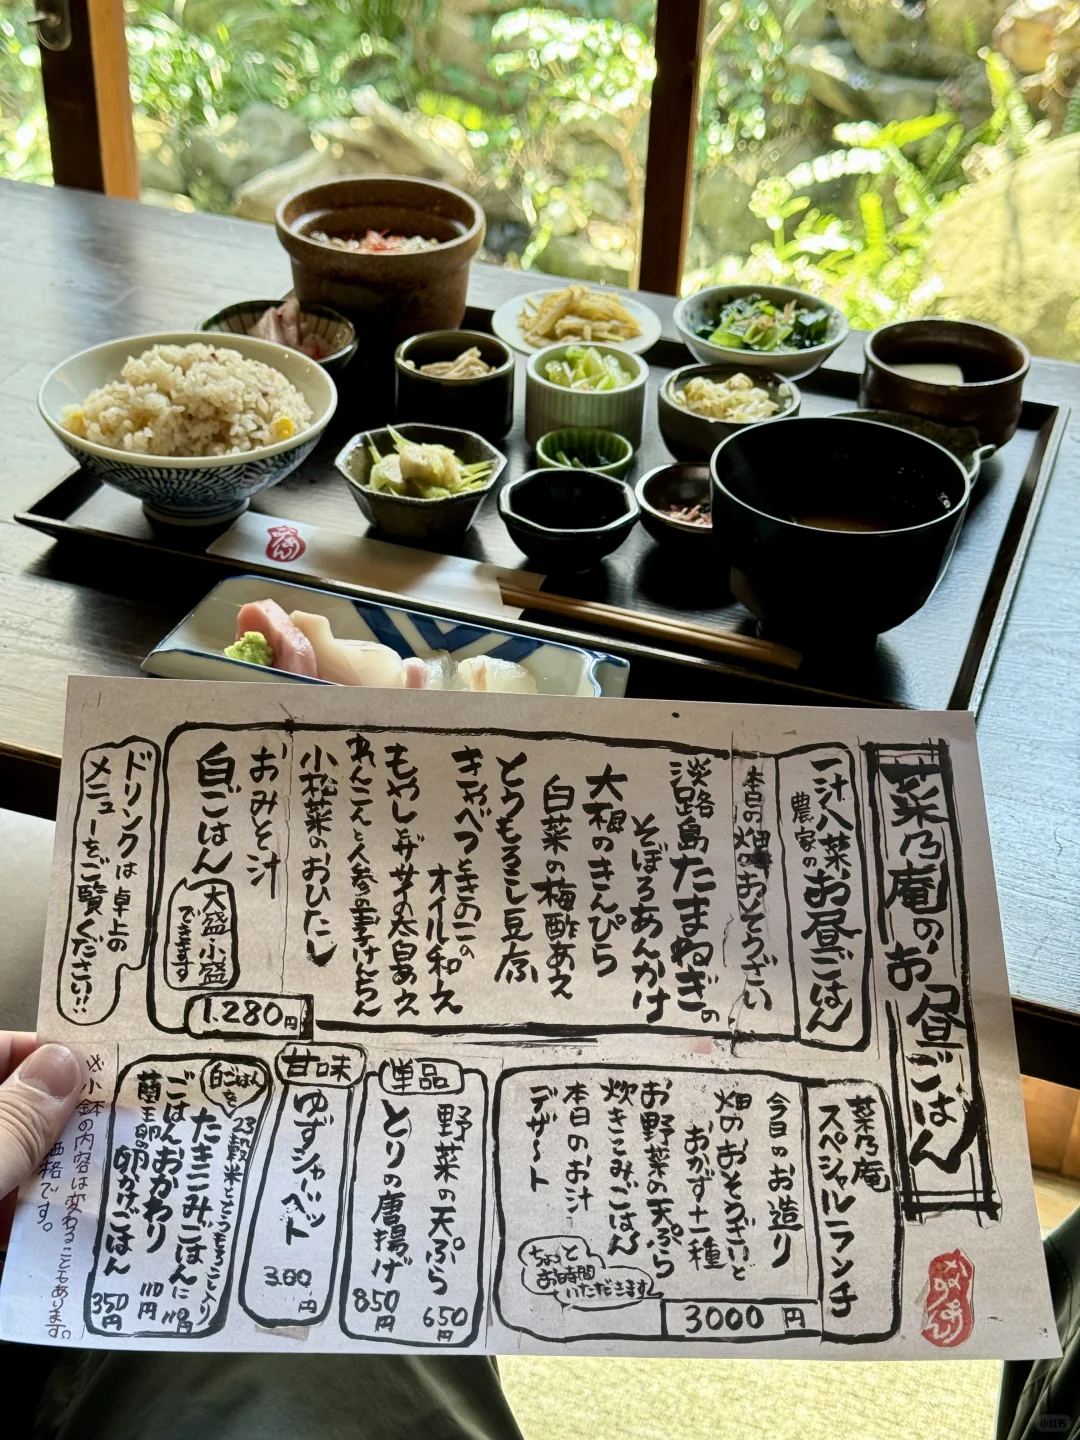 菜乃庵のお昼ごはん
一汁八菜
農家のお昼ごはん
本日の畑のおそうざい
淡路島たまねぎの
そぼろあんかけ
大根のきんぴら
白菜の梅酢あえ
とうもろこし豆腐
きゃべつときのこの
オイル和え
もやしとザーサイの太白あえ
れんこんと人参の
小松菜のおひたし
おみそ汁
白ごはん
大盛小盛
できます
1,280円
ドリンクは卓上の
メニューをご覧ください!!
菜乃庵
スペシャルランチ
今日のお造り
畑のおそうざいと
おかず十一種
お野菜の天ぷら
炊きこみごはん
本日のお汁
デザート
ちょっと
お時間
いただきます
3000円
単品
野菜の天ぷら
650円
とりの唐揚げ
850円
甘味
ゆずシャーベット
300円
白ごはんを
23穀米ととうもろこし入り
たきこみごはんに
110円
ごはんおかわり
110円
蘭王卵の卵かけごはん
350円
※小鉢の内容は変わることもあります。
価格です。
なのあん
なのあん
小红书